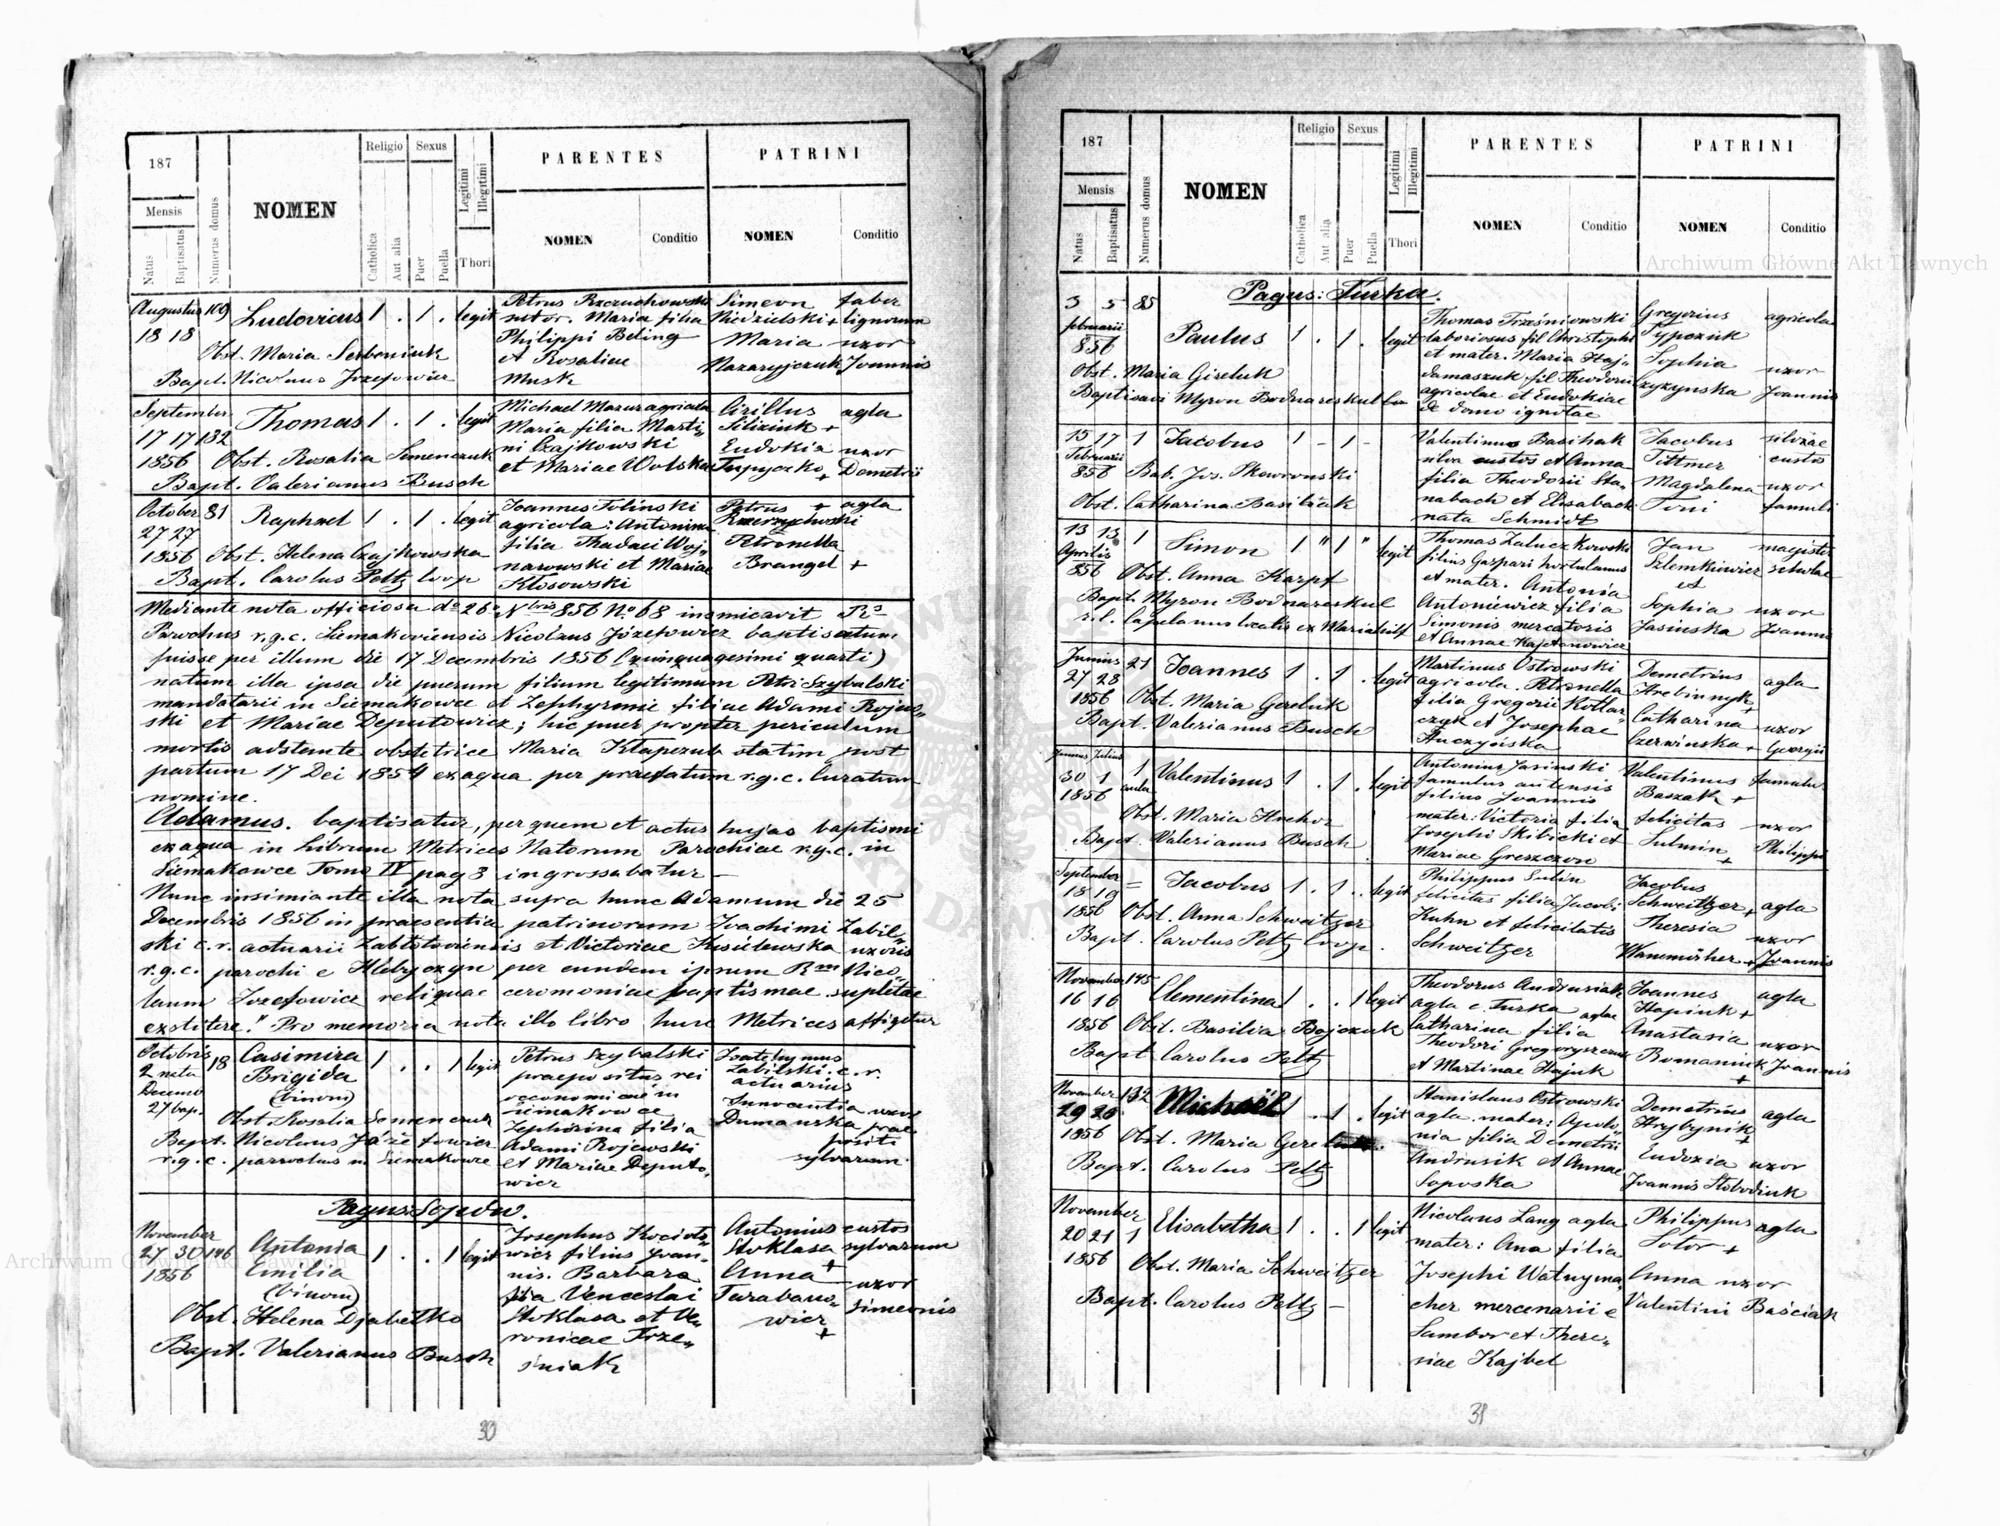 187
Mensis
Natus
Baptisatus
Numerus domus
NOMEN
Religio
Catholica
Aut alia
Sexus
Puer
Puella
Legitimi
Illegitimi
Thori
PARENTES
NOMEN
Conditio
PATRINI
NOMEN
Conditio
Augustus 109
18 18
Ludovicus 1 . 1 . legit
Obst. Maria Serbeniuk
Bapt. Nicolaus Jozefowicz
Petrus Rzeruchowski
sutor. Maria filia
Philippi Beling
et Rosaliae
Musk
Simeon faber
Niedzielski + lignorum
Maria uxor
Nazaryjczuk Joannis
September
17 17 132
1856
Thomas 1 . 1 . legit
Obst. Rosalia Semenczuk
Bapt. Valerianus Busch
Michael Mazur agricola
Maria filia Marti„
ni Czajkowski
et Mariae Wolska
Cirillus agla
Siliziuk +
Eudokia uxor
Tupyczko + Demetrii
October 81
27 27
1856
Raphael 1 . 1 . legit
Obst. Helena Czajkowska
Bapt. Carolus Peltz Coop
Joannes Tolinski
agricola: Antonina
filia Thadaei Woj„
narowski et Mariae
Kłosowski
Petrus + agla
Rzerzychoski
Petronella
Brangel +
Mediante nota officiosa do 26 Nbris 856 No 68 insinuavit Rs
Parochus r.g.c. Siemakoviensis Nicolaus Józefowicz baptisatum
fuisse per illum die 17 Decembris 1856 (quinquagesimi quarti)
natum illa ipsa die puerum filium legitimum Petri Szybalski
mandatarii in Siemakowce et Zephyrinae filiae Adami Rojew„
ski et Mariae Deputowicz; hic puer propter periculum
mortis adstante obstetrice Maria Kłapczub statim post
partum 17 Dei 1854 exaqua per praefatum r.g.c. Curatum
nomine.
Adamus. baptisatur, per quem et actus hujas baptismi
exaqua in Librum Metrices Natorum Parochiae r.g.c. in
Siemakowce Tomo IV pag 3 ingrossabatur –
Nunc insimiante illa nota supra hunc Adamum die 25
Decembris 1856 in praesentia patrinorum Joachimi Zabil„
ski c.r. actuarii Zabłotoviensis et Victoriae Kisielewska uxoris
r.g.c. parochi e Hlebyczyn per eundem ipsum Rmm Nico„
laum Jozefowicz reliquae ceremoniae baptismae supletae
exstitere." Pro memoria nota illo libro hunc Metrices affigetur
Octobris 18
2 nata
Decemb
27 bap.
Casimira 1 . . 1 legit
Brigida
(binom)
Obst. Rosalia Semenczuk
Bapt. Nicolaus Józefowicz
r.g.c. parrochus in Siemakowce
Petrus Szybalski
praepositus rei
oeconomicae in
Siemakowce
Zephirina filia
Adami Rojewski
et Mariae Deputo„
wicz
Joachymus
Zabilski c. r.
actuarius
Innocentia uxor
Dumanska prae
positi
sylvarum
Pagus: Sopów.
November
27 30 146
1856
Antonia 1 . . 1 legit
Emilia
(binom)
Obst. Helena Djabetko
Bapt. Valerianus Busch
Josephus Kociole„
wicz filius Joan„
nis. Barbara
fia Venceslai
Stoklasa et Ve„
ronicae Trze„
śniak
Antonius custos
Stoklasa sylvarum
+
Anna uxor
Tarabano„ Simeonis
wicz
+
30
187
Mensis
Natus
Baptisatus
Numerus domus
NOMEN
Religio
Catholica
Aut alia
Sexus
Puer
Puella
Legitimi
Illegitimi
Thori
PARENTES
NOMEN
Conditio
PATRINI
NOMEN
Conditio
Archiwum Główne Akt Dawnych
Pagus: Turka.
3 5 85
februarii
856
Paulus 1 . 1 . legit
Obst. Maria Gireluk
Baptisavi Myron Bodnareskul
Thomas Trześniowski
laboriosus fil Christophi
et mater. Maria Haj„
damaszuk fil Theodori
agricolae et Eudokiae
de domo ignotae
Gregorius agricola
Typcziuk
Sophia uxor
Czyzynska Joannis
15 17 1
Februarii
856
Jacobus 1 – 1 –
Bab. Jos. Skowronski
Obst. Catharina Basilčak
Valentinus Basihak
silva custos et Anna
filia Theodorii Sta„
nabach et Elisabach
nata Schmidt
Jacobus silvae
Tittmer custos
Magdalena uxor
Toni famuli
13 13 1
Aprilis
856
Simon 1 " 1 " legit
Obst. Anna Karpf
Bapt. Myron Bodnareskul
r.l. Capelanus localis ex Mariahilf
Thomas Zaluczkowski
filius Gaspari hortulanus
et mater. Antonia
Antoniewicz filia
Simonis mercatoris
et Annae Kajetanowicz
Jan magister
Szlemkiewicz scholae
et
Sophia uxor
Jasinska Joannis
Junius 21
27 28
1856
Joannes 1 . 1 . legit
Obst. Maria Gereluk
Bapt. Valerianus Busch
Martinus Ostrowski
agricola. Petronella
filia Gregorii Kotlar„
czyk et Josephae
Huczyńska
Demetrius agla
Hrebinnyk +
Catharina uxor
Czerwinska + Georgii
Junius Julius
30 1 1
1856 aula
Valentinus 1 . 1 . legit
Obst. Maria Hrehor
Bapt. Valerianus Busch
Antonius Jasinski
famulus autensis
filius Joannis
mater. Victoria filia
Josephi Skibicki et
Mariae Greszczon
Valentinus famulus
Baszak +
felicitas uxor
Sulmin + Philippi
September
18 19 =
1856
Jacobus 1 . 1 . legit
Obst. Anna Schweitzer
Bapt. Carolus Peltz Coop.
Philippus Sulin
felicitas filia Jacobi
Kuhn et felicitatis
Schweitzer
Jacobus
Schweitzer + agla
Theresia
uxor
Wanmüsher + Joannis
November 145
16 16
1856
Clementina 1 . . 1 legit
Obst. Basilia Bojczuk
Bapt Carolus Peltz
Theodorus Andrusiak
agla e Turka aglae
Catharina filia
Theodori Gregoryszczuk
et Martinae Hajuk
Joannes agla
Hapiuk +
Anastasia uxor
Romaniuk Joannis
+
November 132
29 20
1856
Michaël 1 . 1 . legit
Obst. Maria Gereluk.
Bapt. Carolus Peltz
Stanislaus Ostrowski
agla. mater: Apolo„
nia filia Demetrii
Andrusik et Annae
Soposka
Demetrius agla
Hrybynik +
Eudoxia uxor
Joannis Slobodiuk
November
20 21 1
1856
Elisabetha 1 . . 1 legit
Obst. Maria Schweitzer
Bapt. Carolus Peltz –
Nicolaus Lang agla
mater: Ana filia
Josephi Watnyma„
cher mercenarii e
Sambor et There„
siae Kajbel
Philippus agla
Sotor +
Anna uxor
Valentini Baściak
31
Archiwum Główne Akt Dawnych